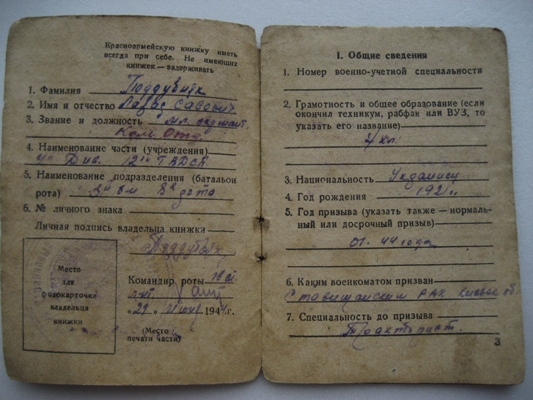 Красноармейскую книжку иметь
всегда при себе. Не имеющих
книжек — задерживать
1. Фамилия Поддубник
2. Имя и отчество Савович
3. Звание и должность мл. сержант
Ком. Отд.
4. Наименование части (учреждения)
Див.
5. Наименование подразделения (батальон
рота) рота
6. № личного знака
Личная подпись владельца книжки
Место
для
фотокарточки
владельца
книжки
Командир роты
"29" 194 г.
(Место
печати части)
I. Общие сведения
1. Номер военно-учетной специальности
2. Грамотность и общее образование (если
окончил техникум, рабфак или ВУЗ, то
указать его название)
4 кл.
3. Национальность Украинец
4. Год рождения 192
5. Год призыва (указать также — нормаль-
ный или досрочный призыв)
01. 44 года
6. Каким военкоматом призван
Ставищанским РВК Киевск об.
7. Специальность до призыва
Тракторист.
3